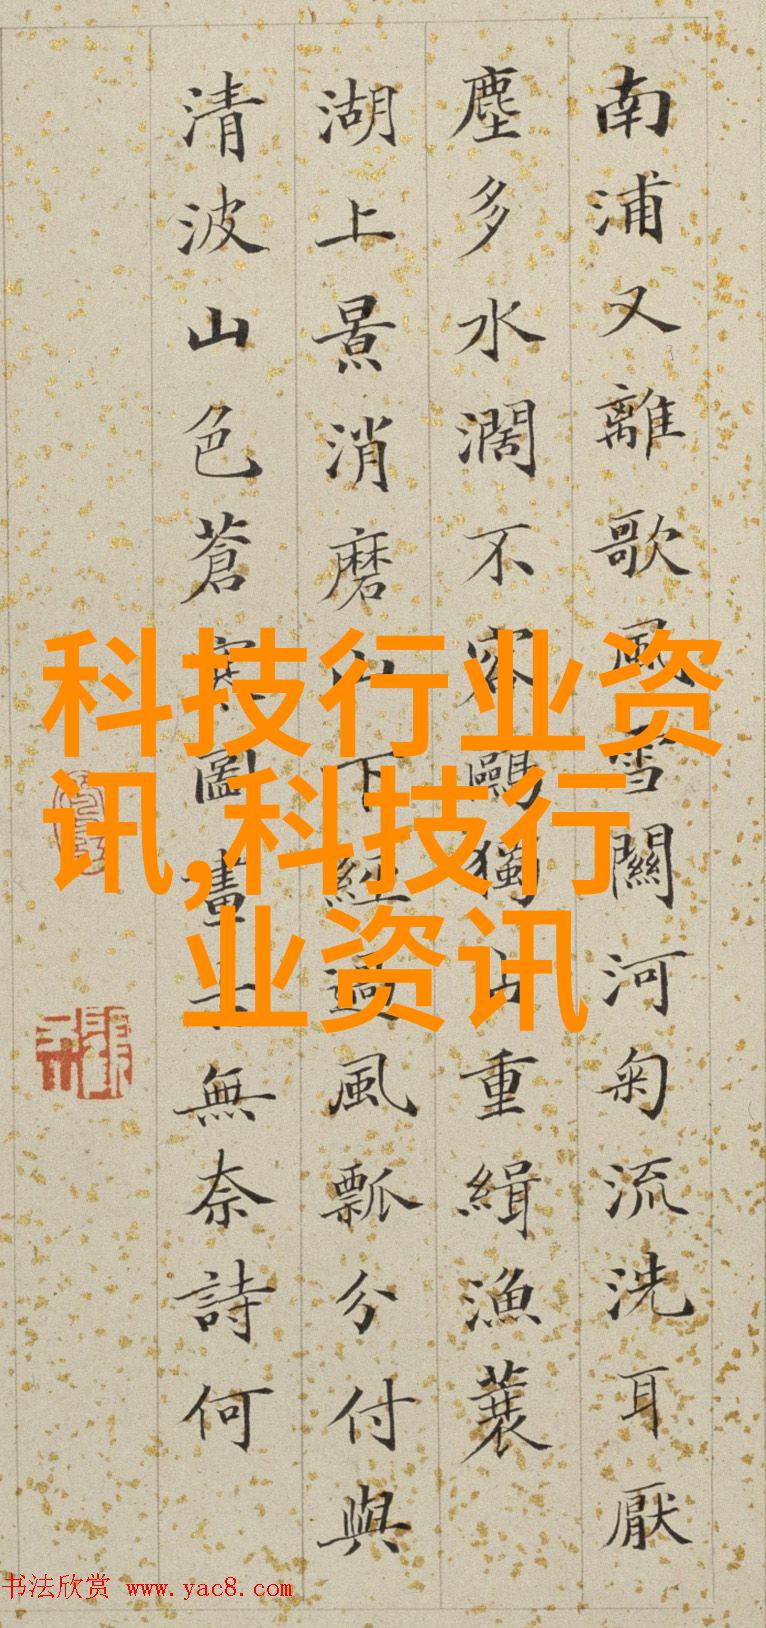 南浦又離歌風雪關河匊流洗耳厭
塵多水濶不容鷗獨占重緝漁蓑
湖上景消磨山下經過風瓢分付與
清波山色蒼寒圖畫無奈詩何
科技行业资
讯,科技行
业资讯
书法欣赏 www.yac8.com